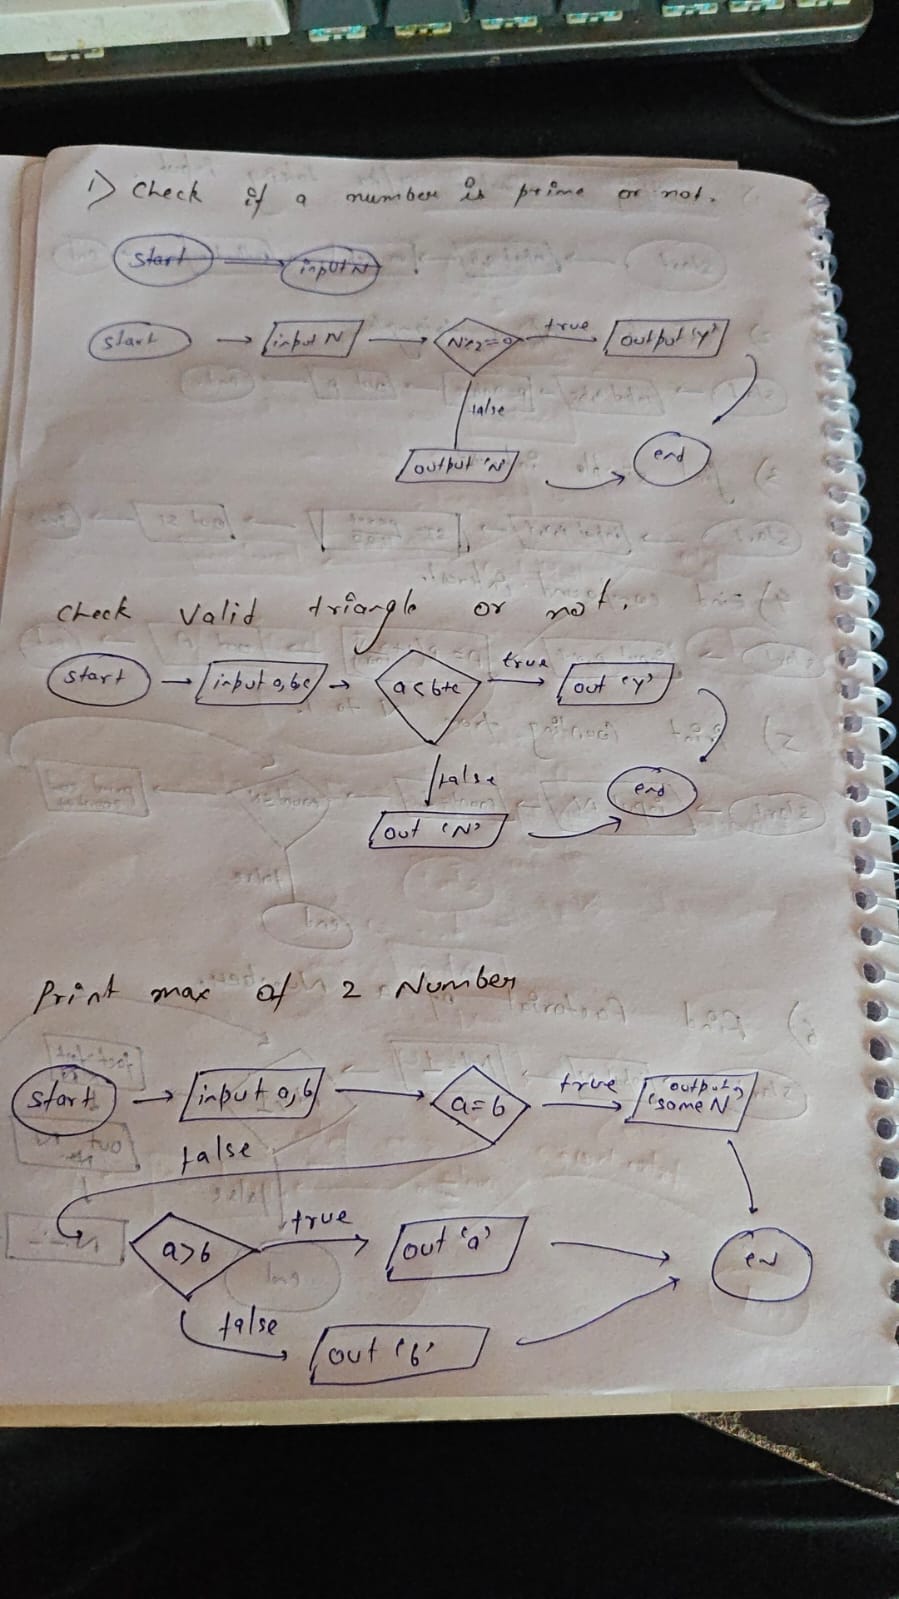 1) Check if a number is prime or not.
start input N
start input N N%2=0 true output 'Y'
false
output 'N' end
Check Valid triangle or not.
start input a,bc a<b+c true out 'Y'
false
out 'N' end
Print max of 2 Number
start input a,b a=b true output 'some N'
false
a>b true out 'a' en
false
out 'b'